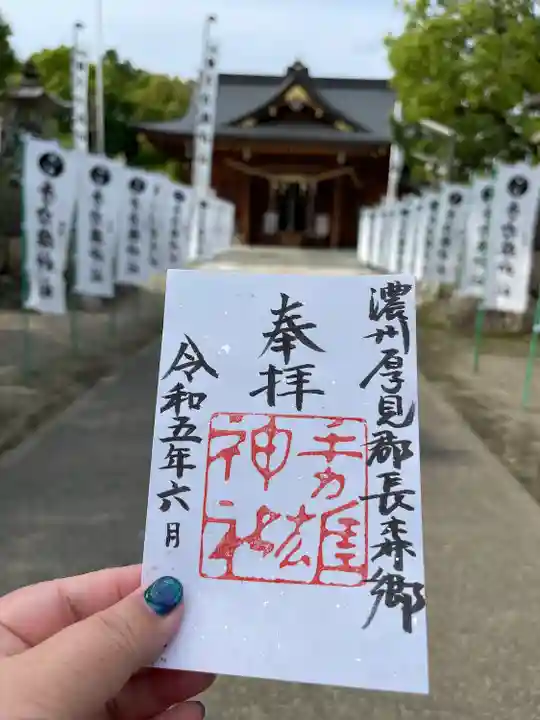 濃州厚見郡長森郷
奉拝
手力雄
神社
令和五年六月
手力雄神社